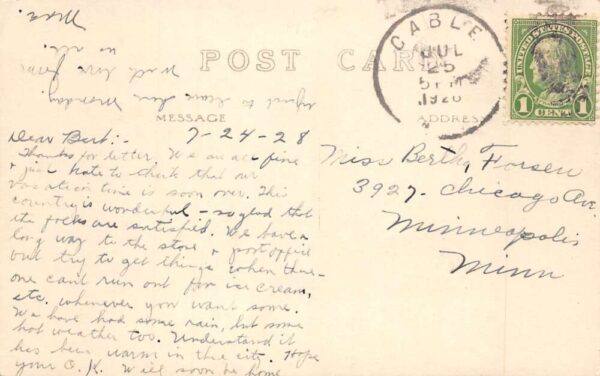 POST CARD
MESSAGE
ADDRESS
CABLE
JUL
25
5 PM
1928
UNITED STATES POSTAGE
1 CENT 1
Miss Bertha Forsen
3927- Chicago Ave.
Minneapolis
Minn
7-24-28
Dear Bert:-
Thanks for letter. We are all fine
& just hate to think that our
vacation time is soon over. This
country is wonderful - so glad that
the folks are satisfied. We have a
long way to the store & post office
but try to get things when there-
one can't run out for ice cream,
etc. whenever you want some.
We have had some rain, but some
hot weather too. Understand it
has been warm in the city. Hope
your O.K. Will soon be home
expect to leave here Wednesday
With love from
us all